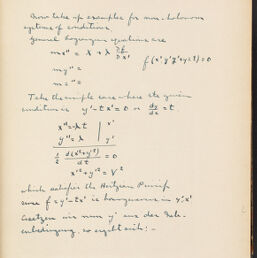 Now take up examples for non-holonom
systems of conditions
General Lagrangian equations are
mx'' = X + λ ∂f/∂x'
my'' =
mz'' =
f(x'y'z'xyzt)=0
Take the simple case where the given
condition is y'-tx'=0 or dy/dx = t
x''=λt | x'
y''=λ | y'
1/2 d(x'²+y'²)/dt = 0
x'²+y'² = V²
which satisfies the Hertzian Princip
since f=y'-tx' is homogeneous in y', x'
nun y' aus der
so ergibt sich: -